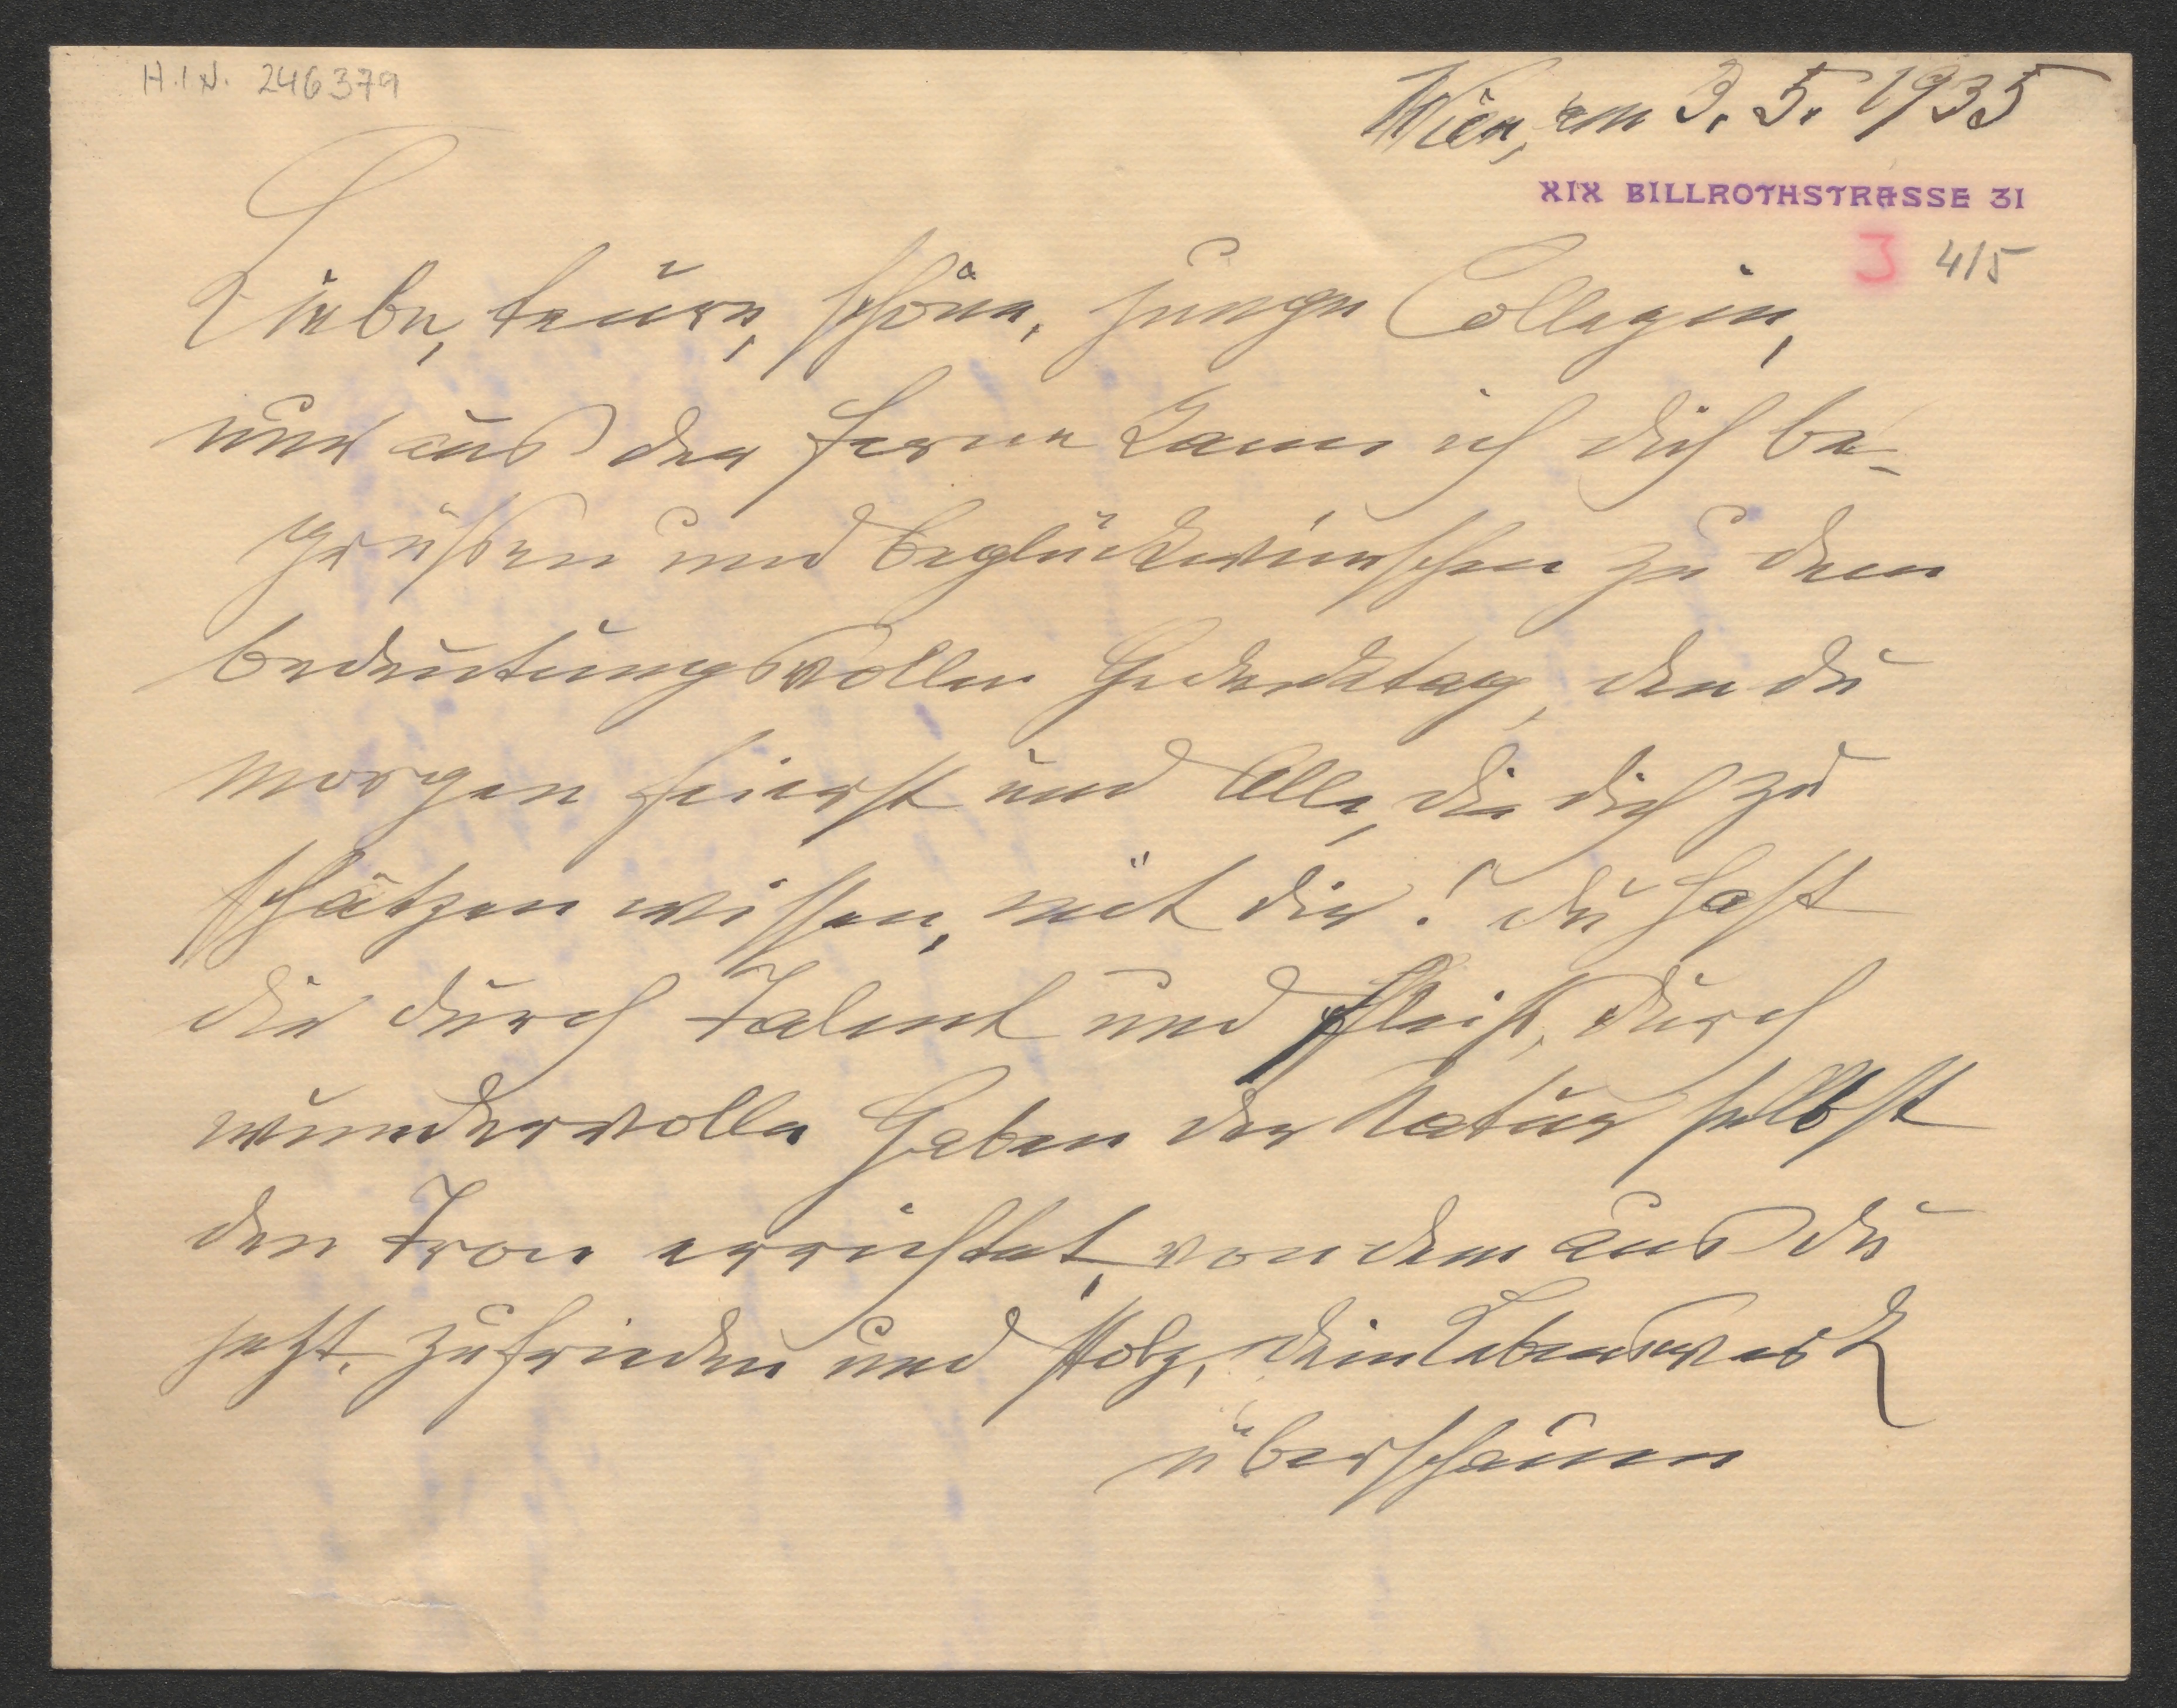 H.I.N. 246379
Wien, am 3. 5. 1935
XIX BILLROTHSTRASSE 31
3 4/5
Liebe, teure, schöne, junge Collegin,
nur aus der Ferne kann ich dich be-
grüßen und beglückwünschen zu dem
bedeutungsvollen Gedenktag, den du
morgen feierst und Alle, die dich zu
schätzen wissen, mit dir! Du hast
dir durch Talent und Fleiß, durch
wundervolle Gaben der Natur selbst
den Tron errichtet, von dem aus du
jetzt, zufrieden und stolz, dein Lebenswerk
überschauen